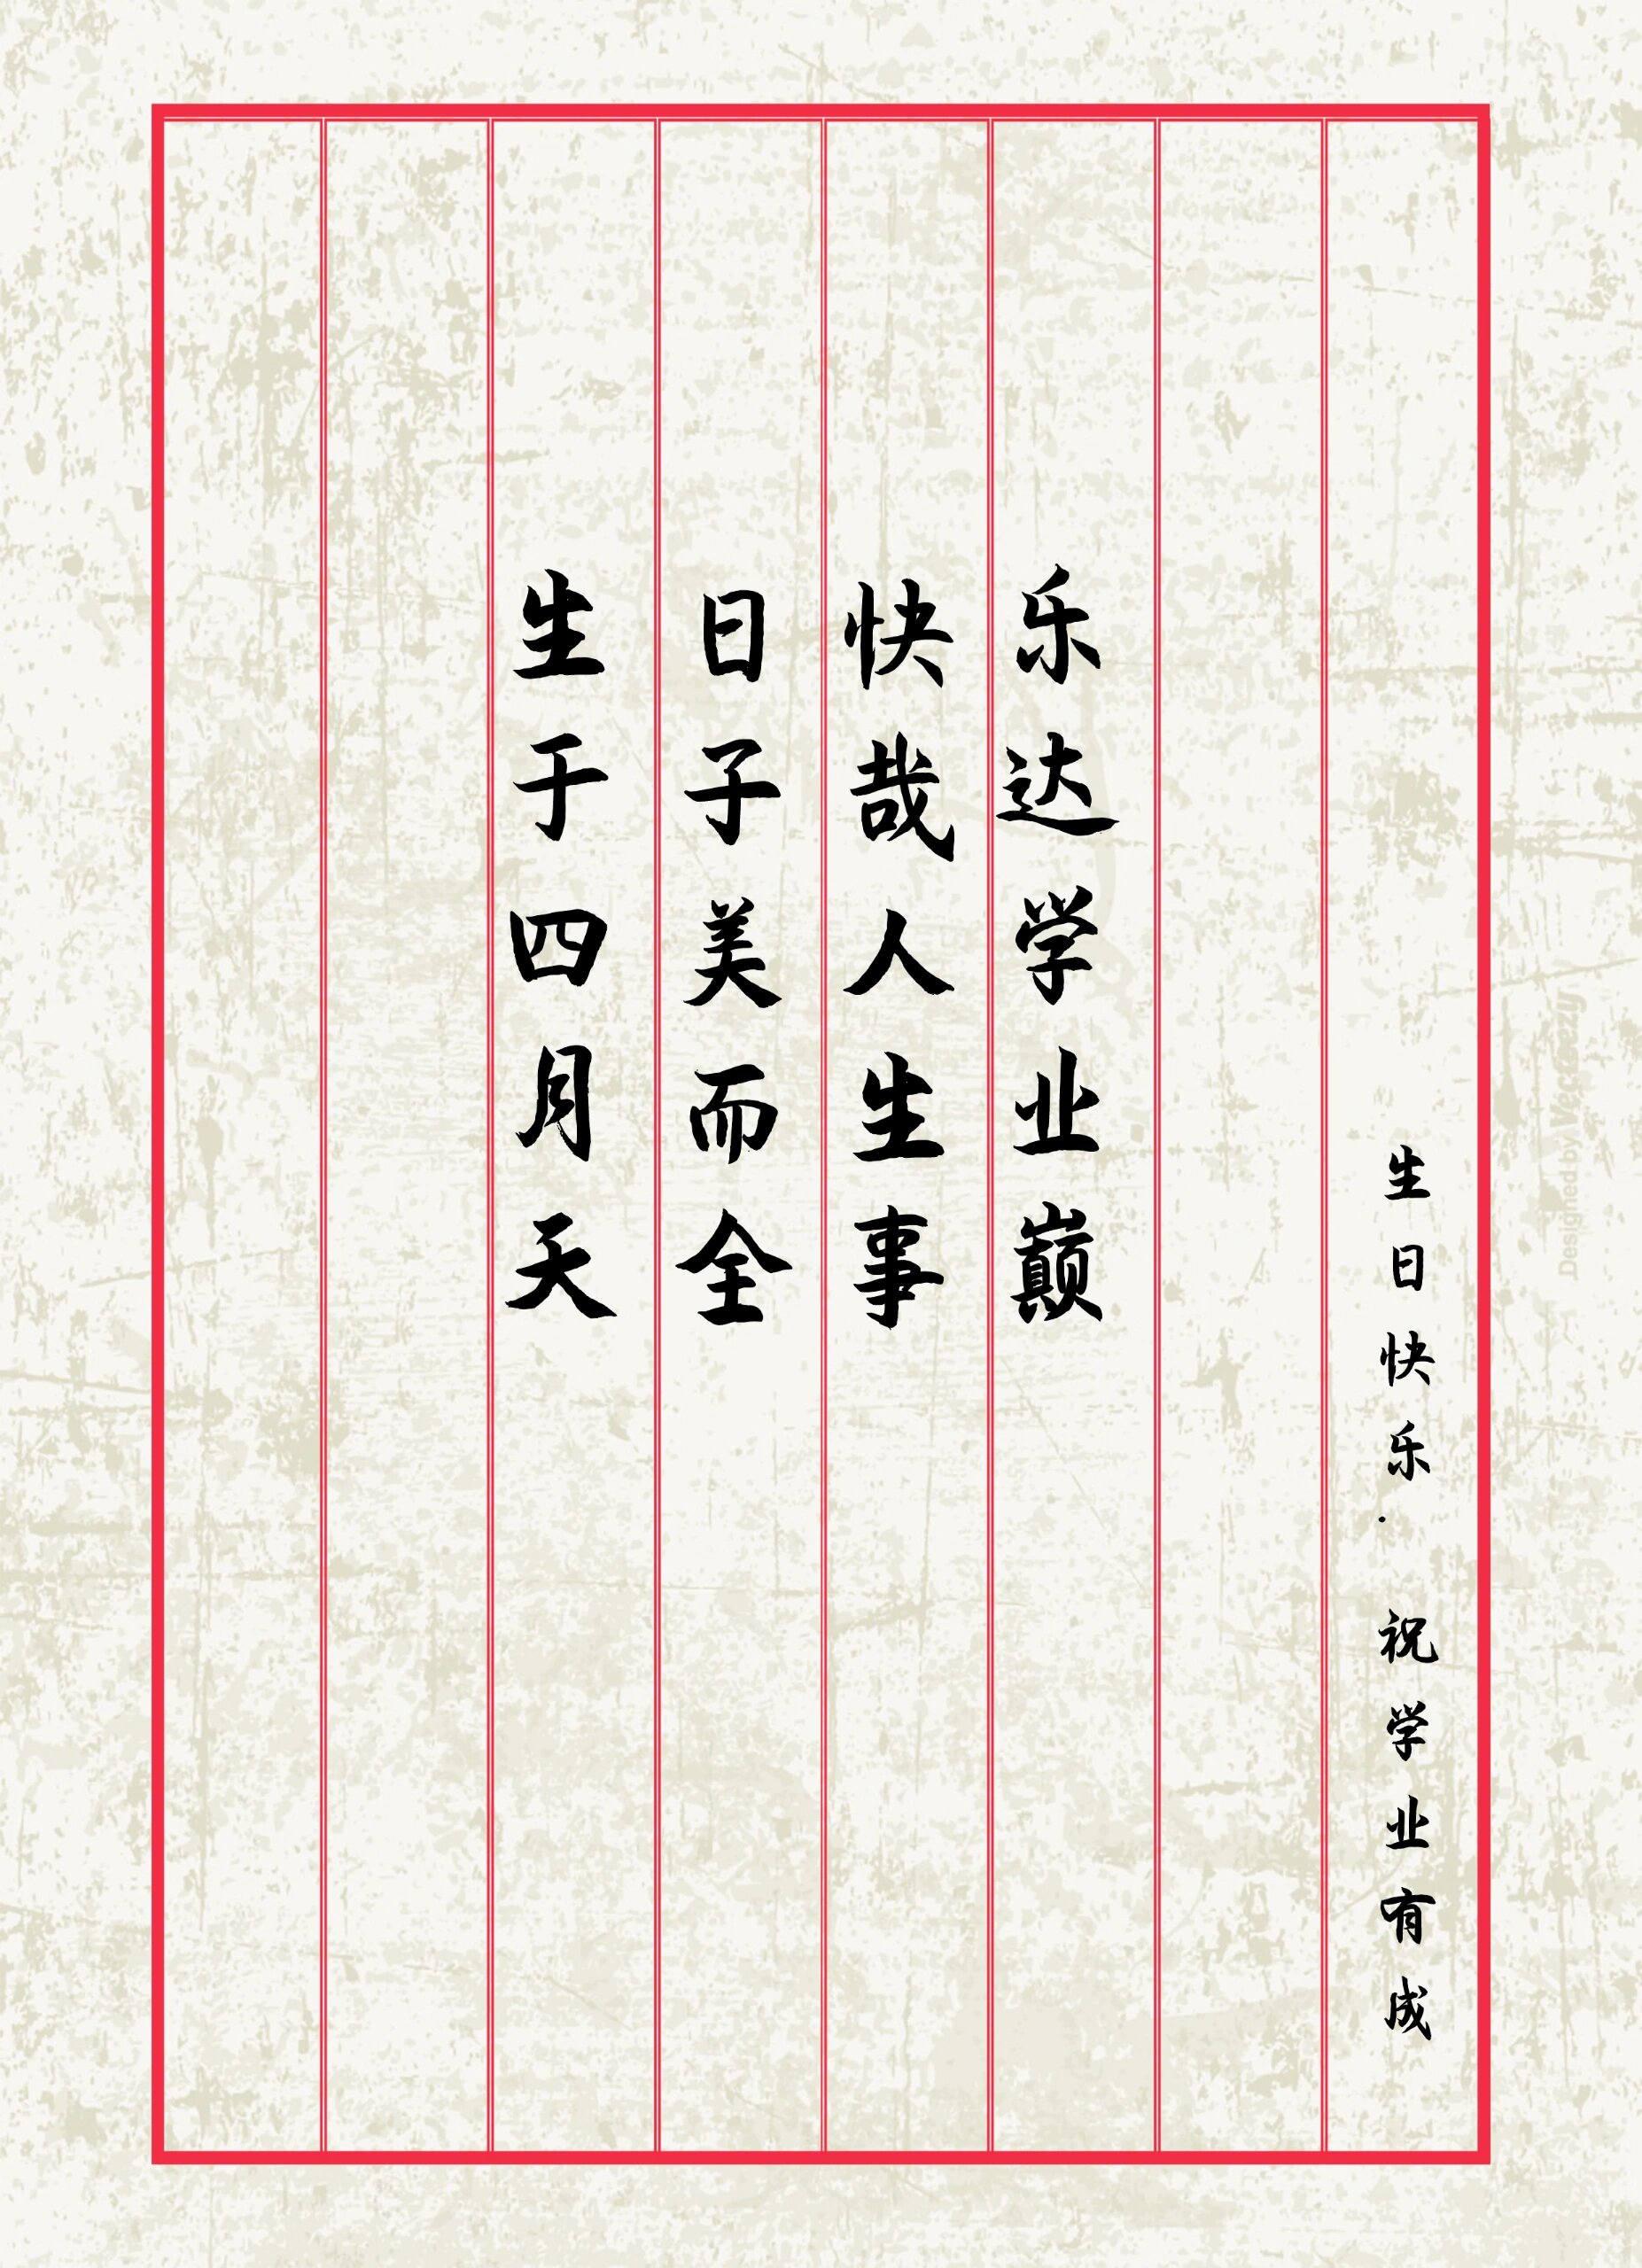 生于四月天
日子美而全
快哉人生事
乐达学业巅
生日快乐. 祝学业有成
Designed by Vecteezy